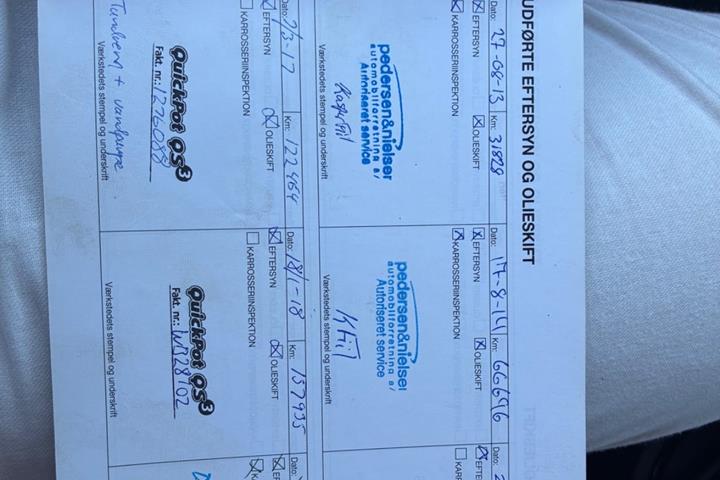 UDFØRTE EFTERSYN OG OLIESKIFT
Dato: 27-08-13 Km: 31828
EFTERSYN OLIESKIFT
KARROSSERIINSPEKTION
pedersen&nielsen
automobilforretning a/
Autoriseret service
Værkstedets stempel og underskrift
Dato: 17-8-14 Km: 66696
EFTERSYN OLIESKIFT
KARROSSERIINSPEKTION
pedersen&nielsen
automobilforretning a/
Autoriseret service
Værkstedets stempel og underskrift
EFTE
KAR
Dato: 7/3-17 Km: 122464
EFTERSYN OLIESKIFT
KARROSSERIINSPEKTION
QuickPot QS3
Fakt. nr.: 1276088
Tandrem + vandpumpe
Værkstedets stempel og underskrift
Dato: 18/1-18 Km: 137935
EFTERSYN OLIESKIFT
KARROSSERIINSPEKTION
QuickPot QS3
Fakt. nr.: W328102
Værkstedets stempel og underskrift
Dato:
EF
KA